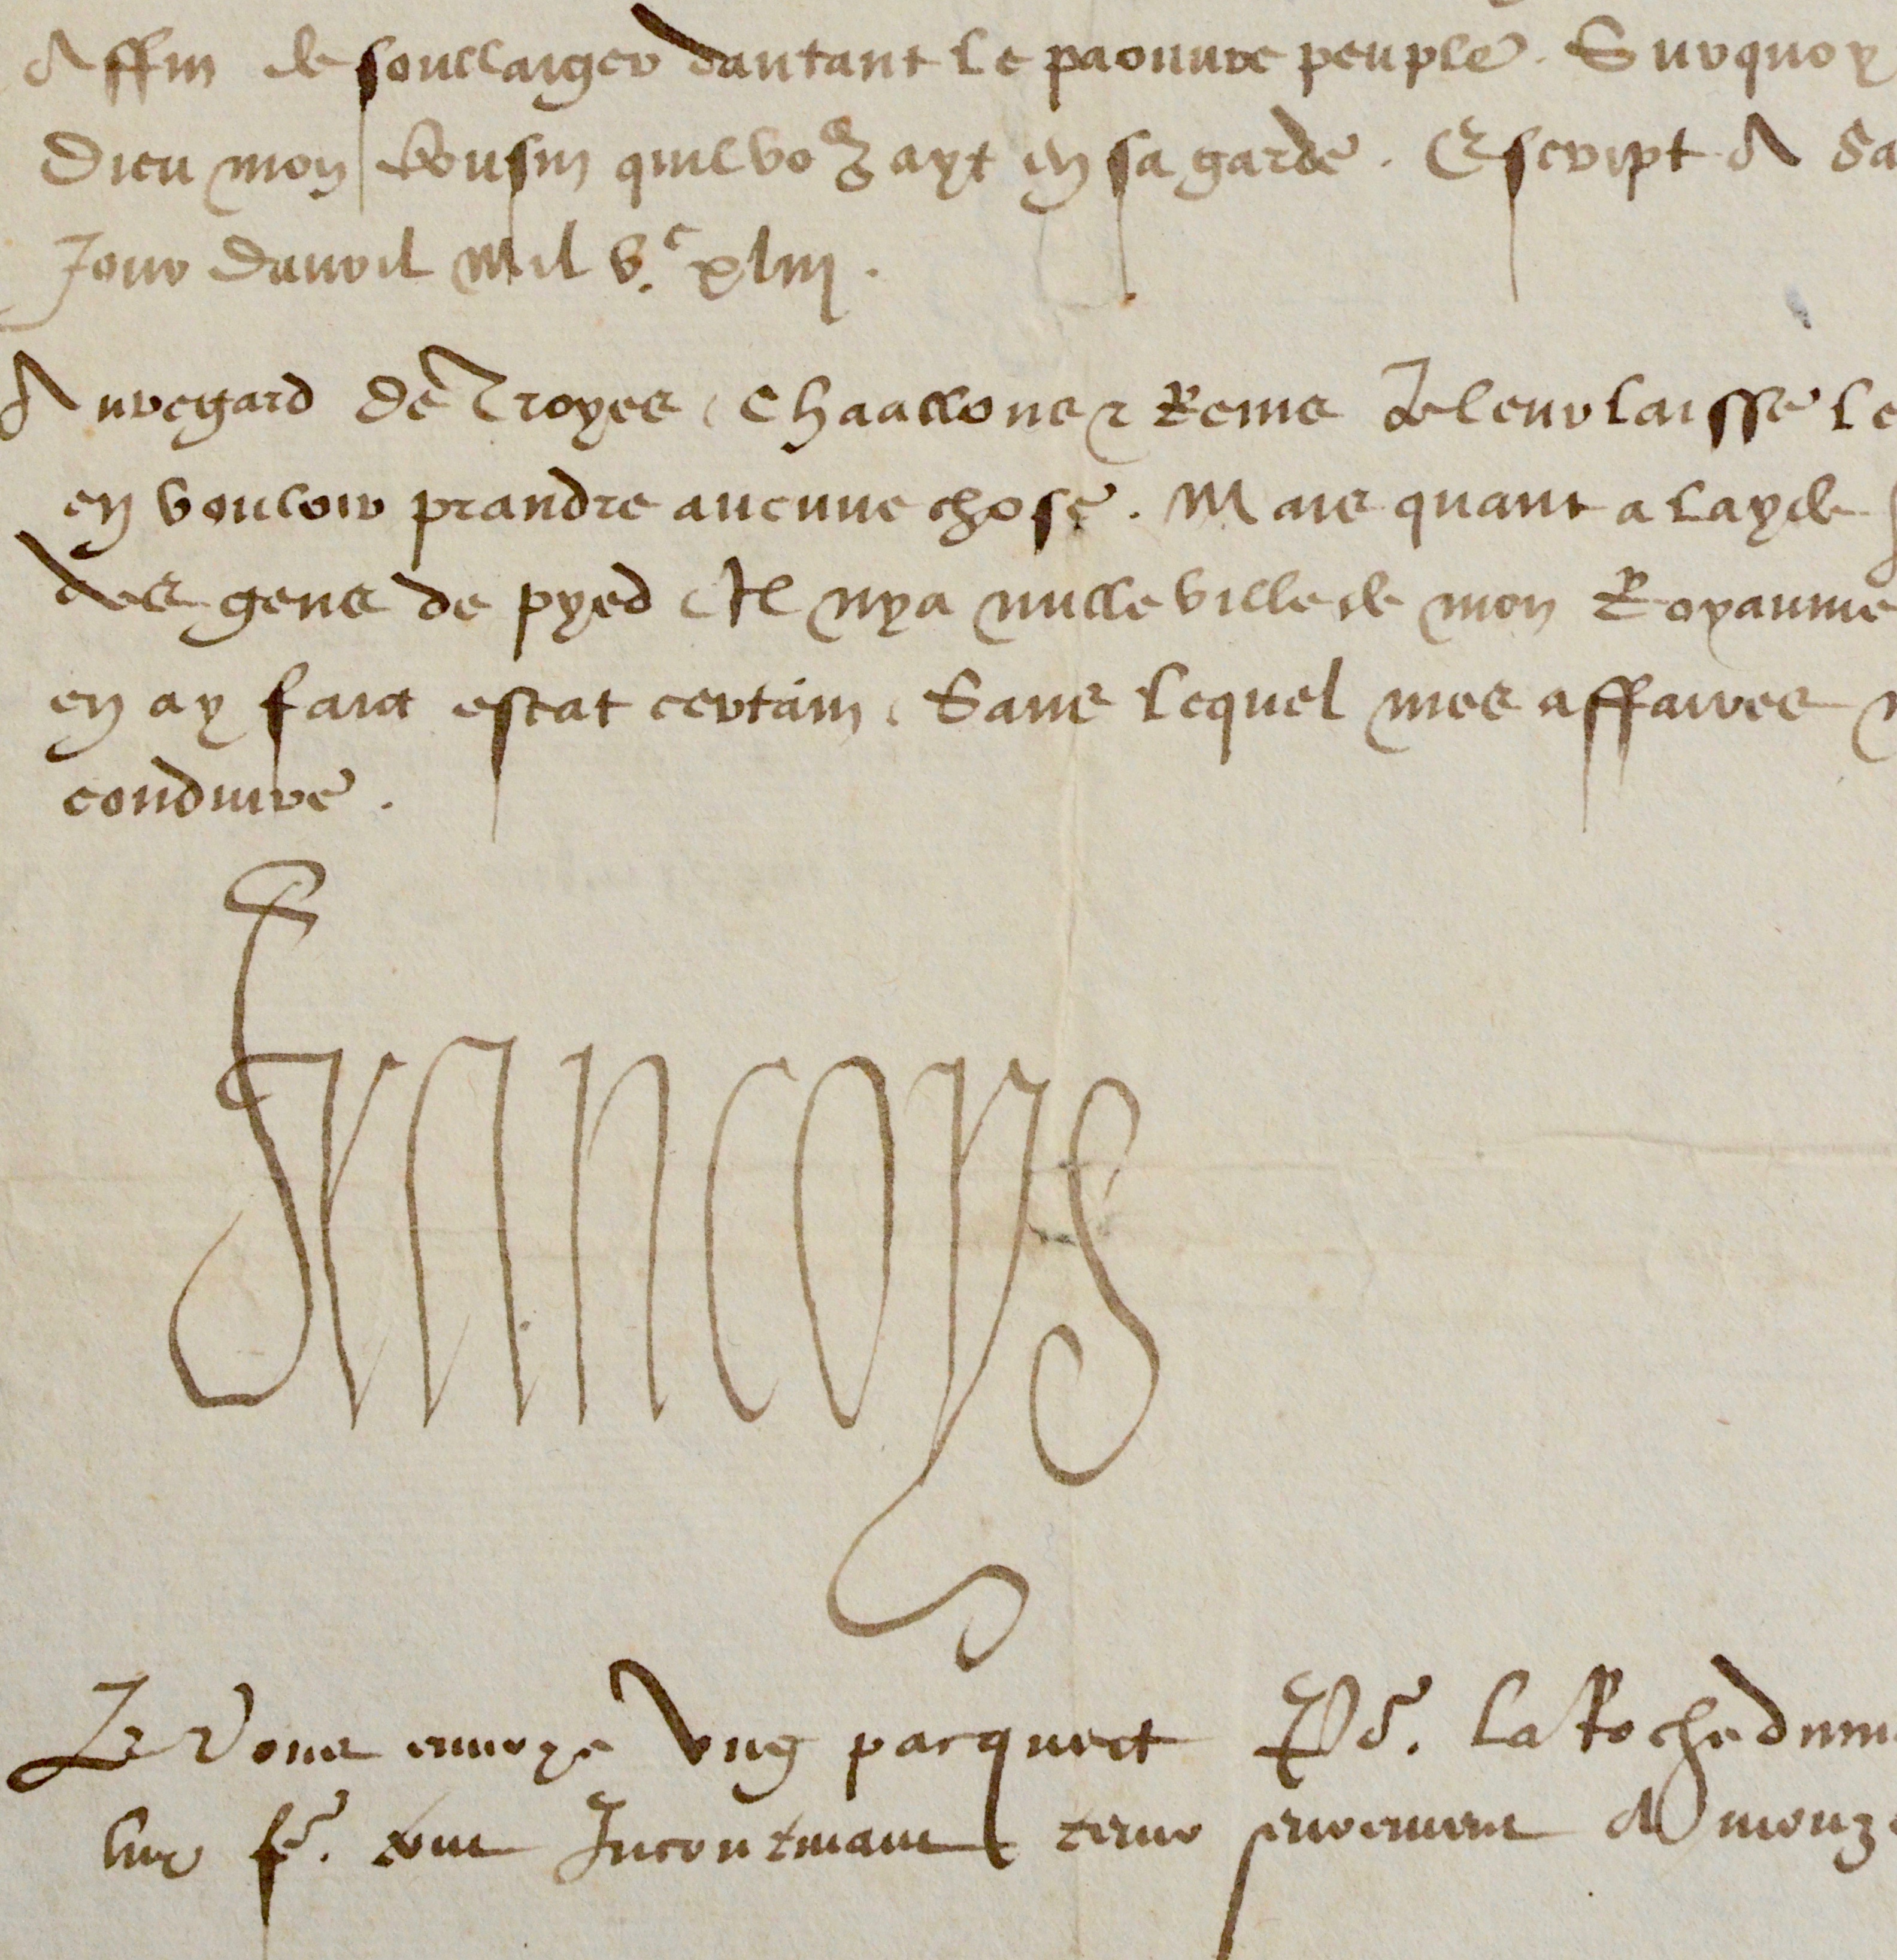 Affin de soullaiger dautant le paouvre peuple. Surquoy
Dieu mon Cousin quil vo9 ayt en sa garde. Escript A Sa
Jour davril mil Vc xliii.
Au regard de Troyes, Chaallons & Reims Je leur laisse le
en vouloir prandre aucune chose. Mais quant a layde
des gens de pyed Il nya nulle ville de mon Royaume
en ay faict estat certain, Sans lequel mes affaires
conduire.
Francoys
Je vous envoye ung pacquect por. La Rochedum
luy fe. Incontinant tenir seurement A mouz